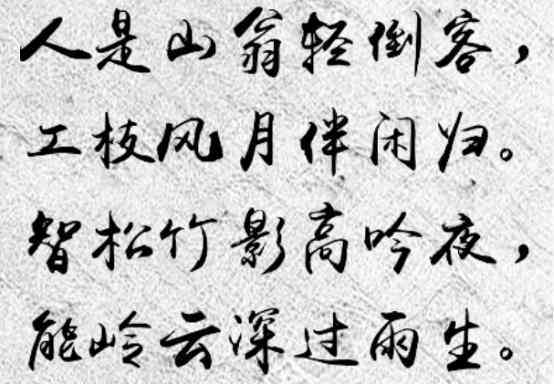 人是山翁轻倒客，
工枝风月伴闲归。
智松竹影高吟夜，
能岭云深过雨生。